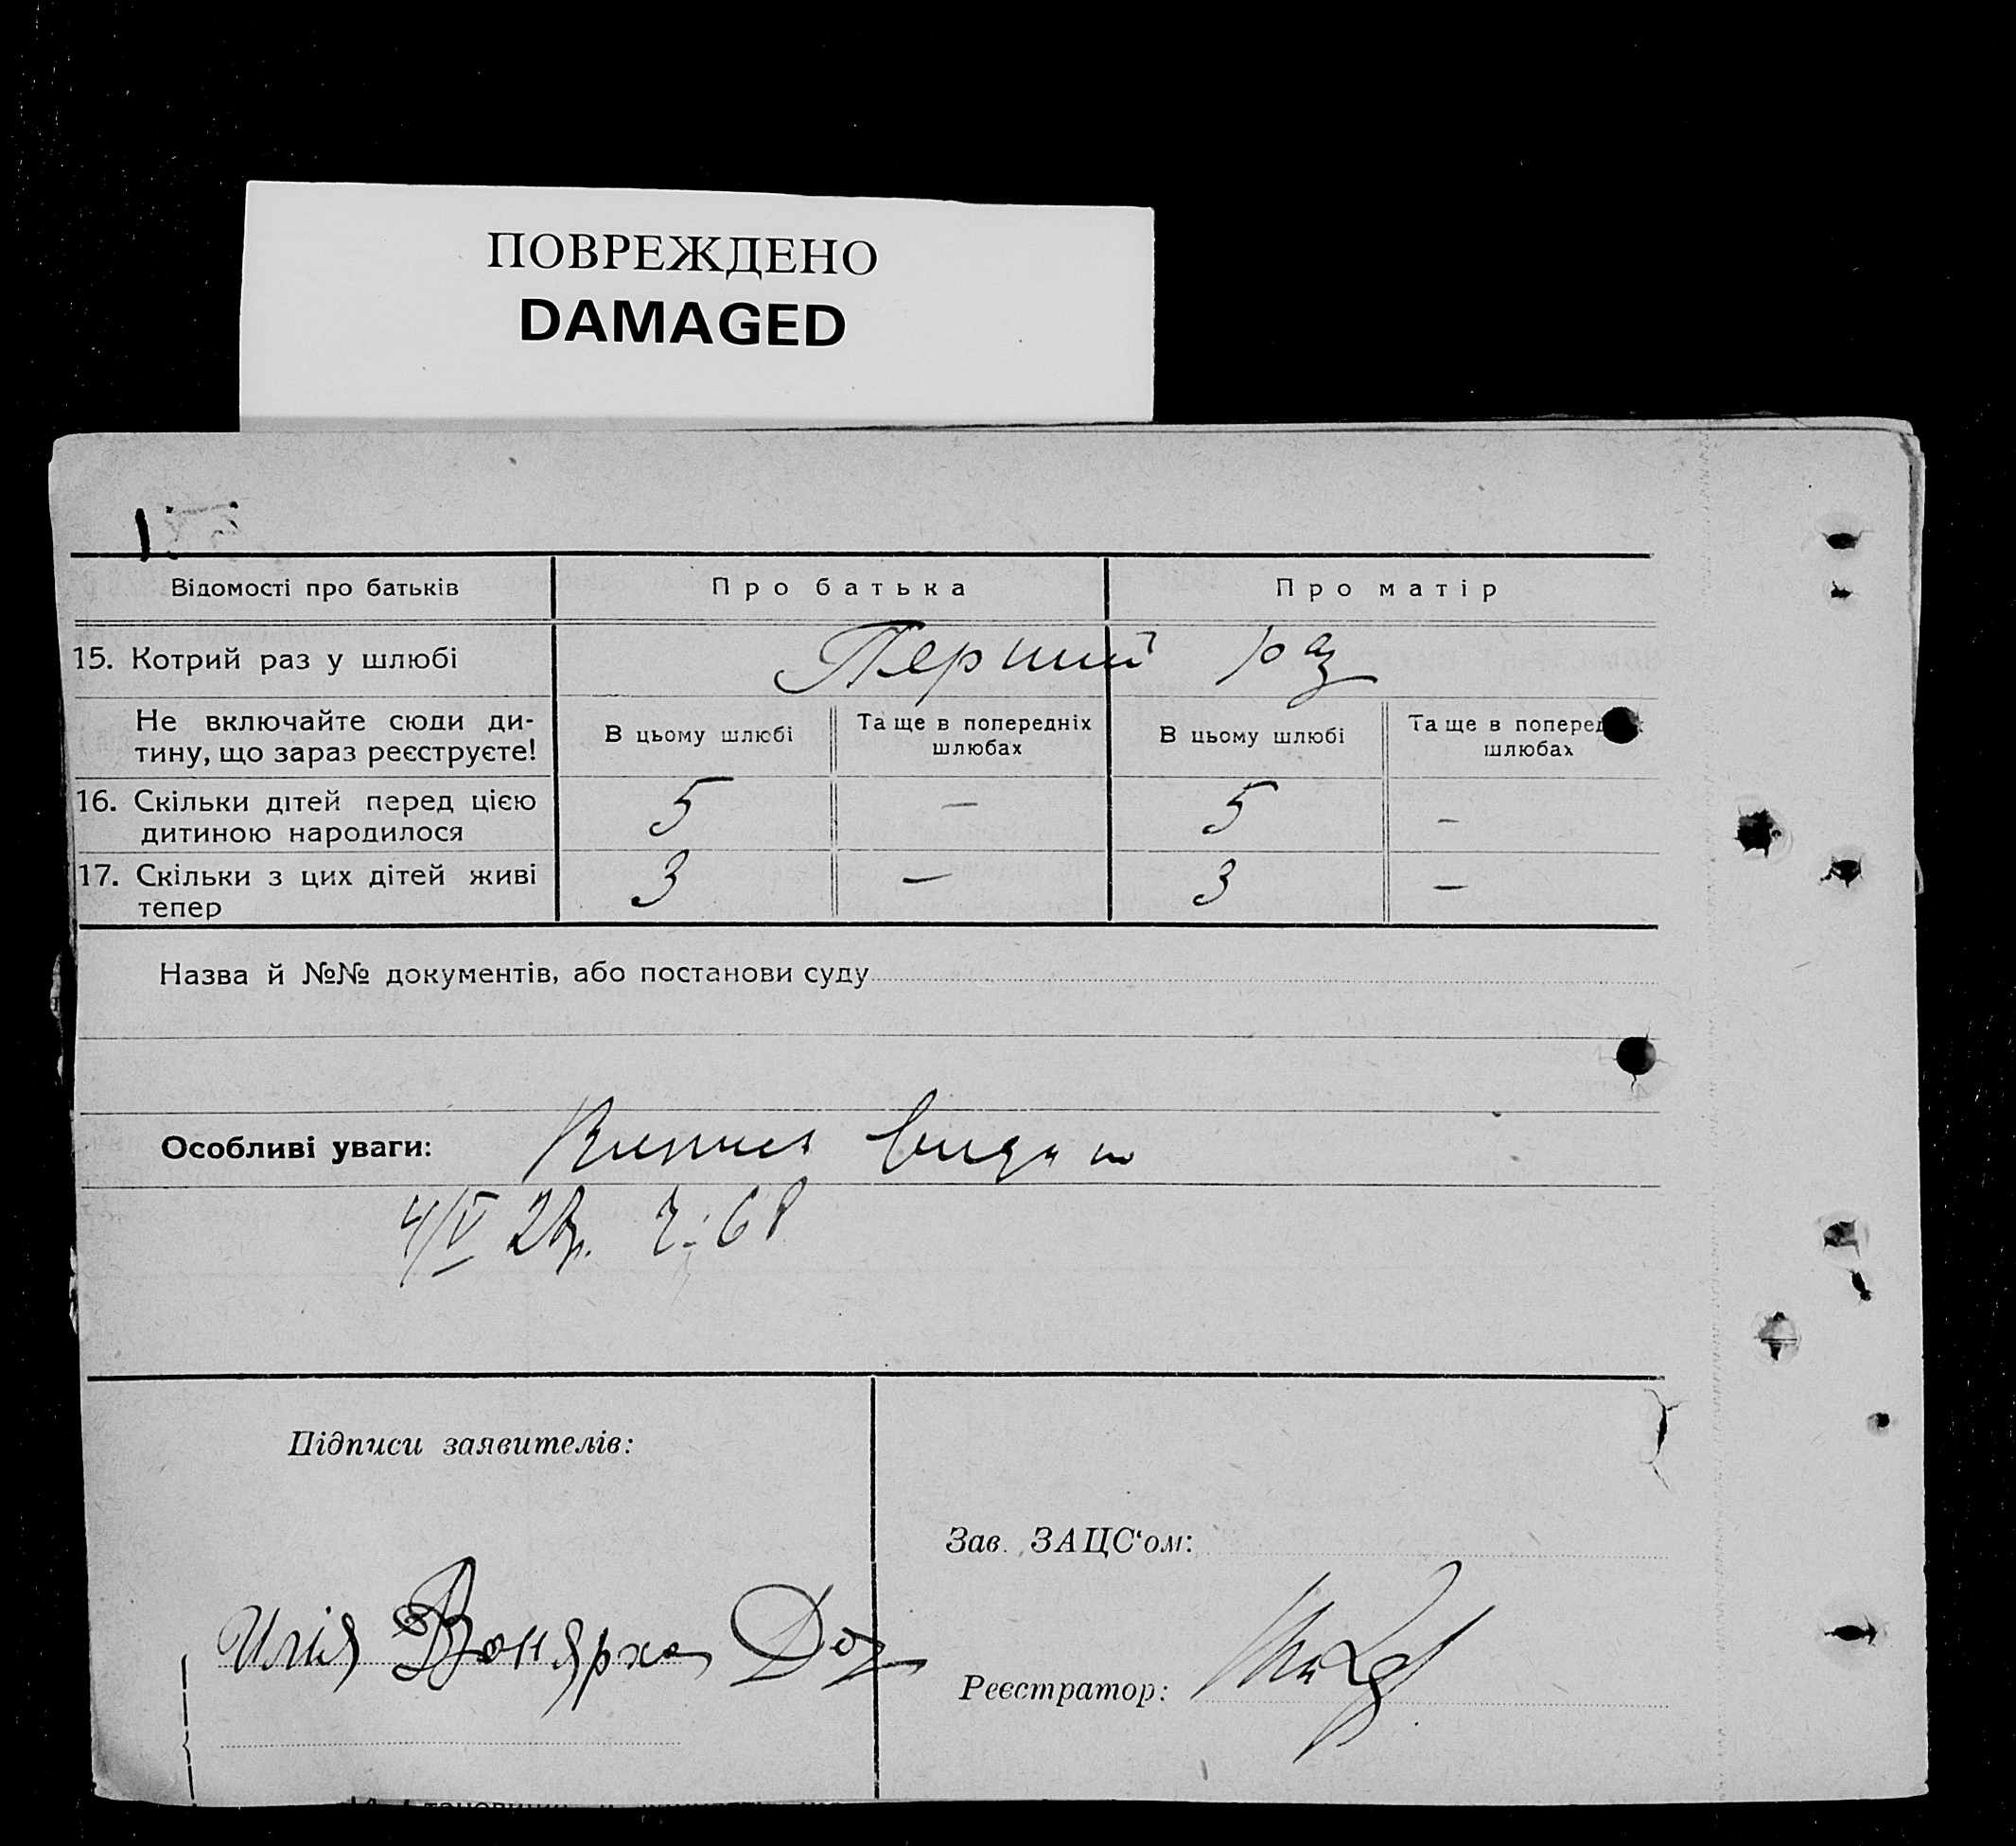 ПОВРЕЖДЕНО
DAMAGED
Відомості про батьків Про батька Про матір
15. Котрий раз у шлюбі Перший раз
Не включайте сюди ди-
тину, що зараз реєструєте!
В цьому шлюбі
Та ще в попередніх
шлюбах
В цьому шлюбі
Та ще в поперед
шлюбах
16. Скільки дітей перед цією
дитиною народилося
5 — 5 –
17. Скільки з цих дітей живі
тепер
3 — 3 —
Назва й №№ документів, або постанови суду
Особливі уваги:
4/V
Підписи заявителів:
Зав. ЗАЦС‘ом:
Реєстратор: